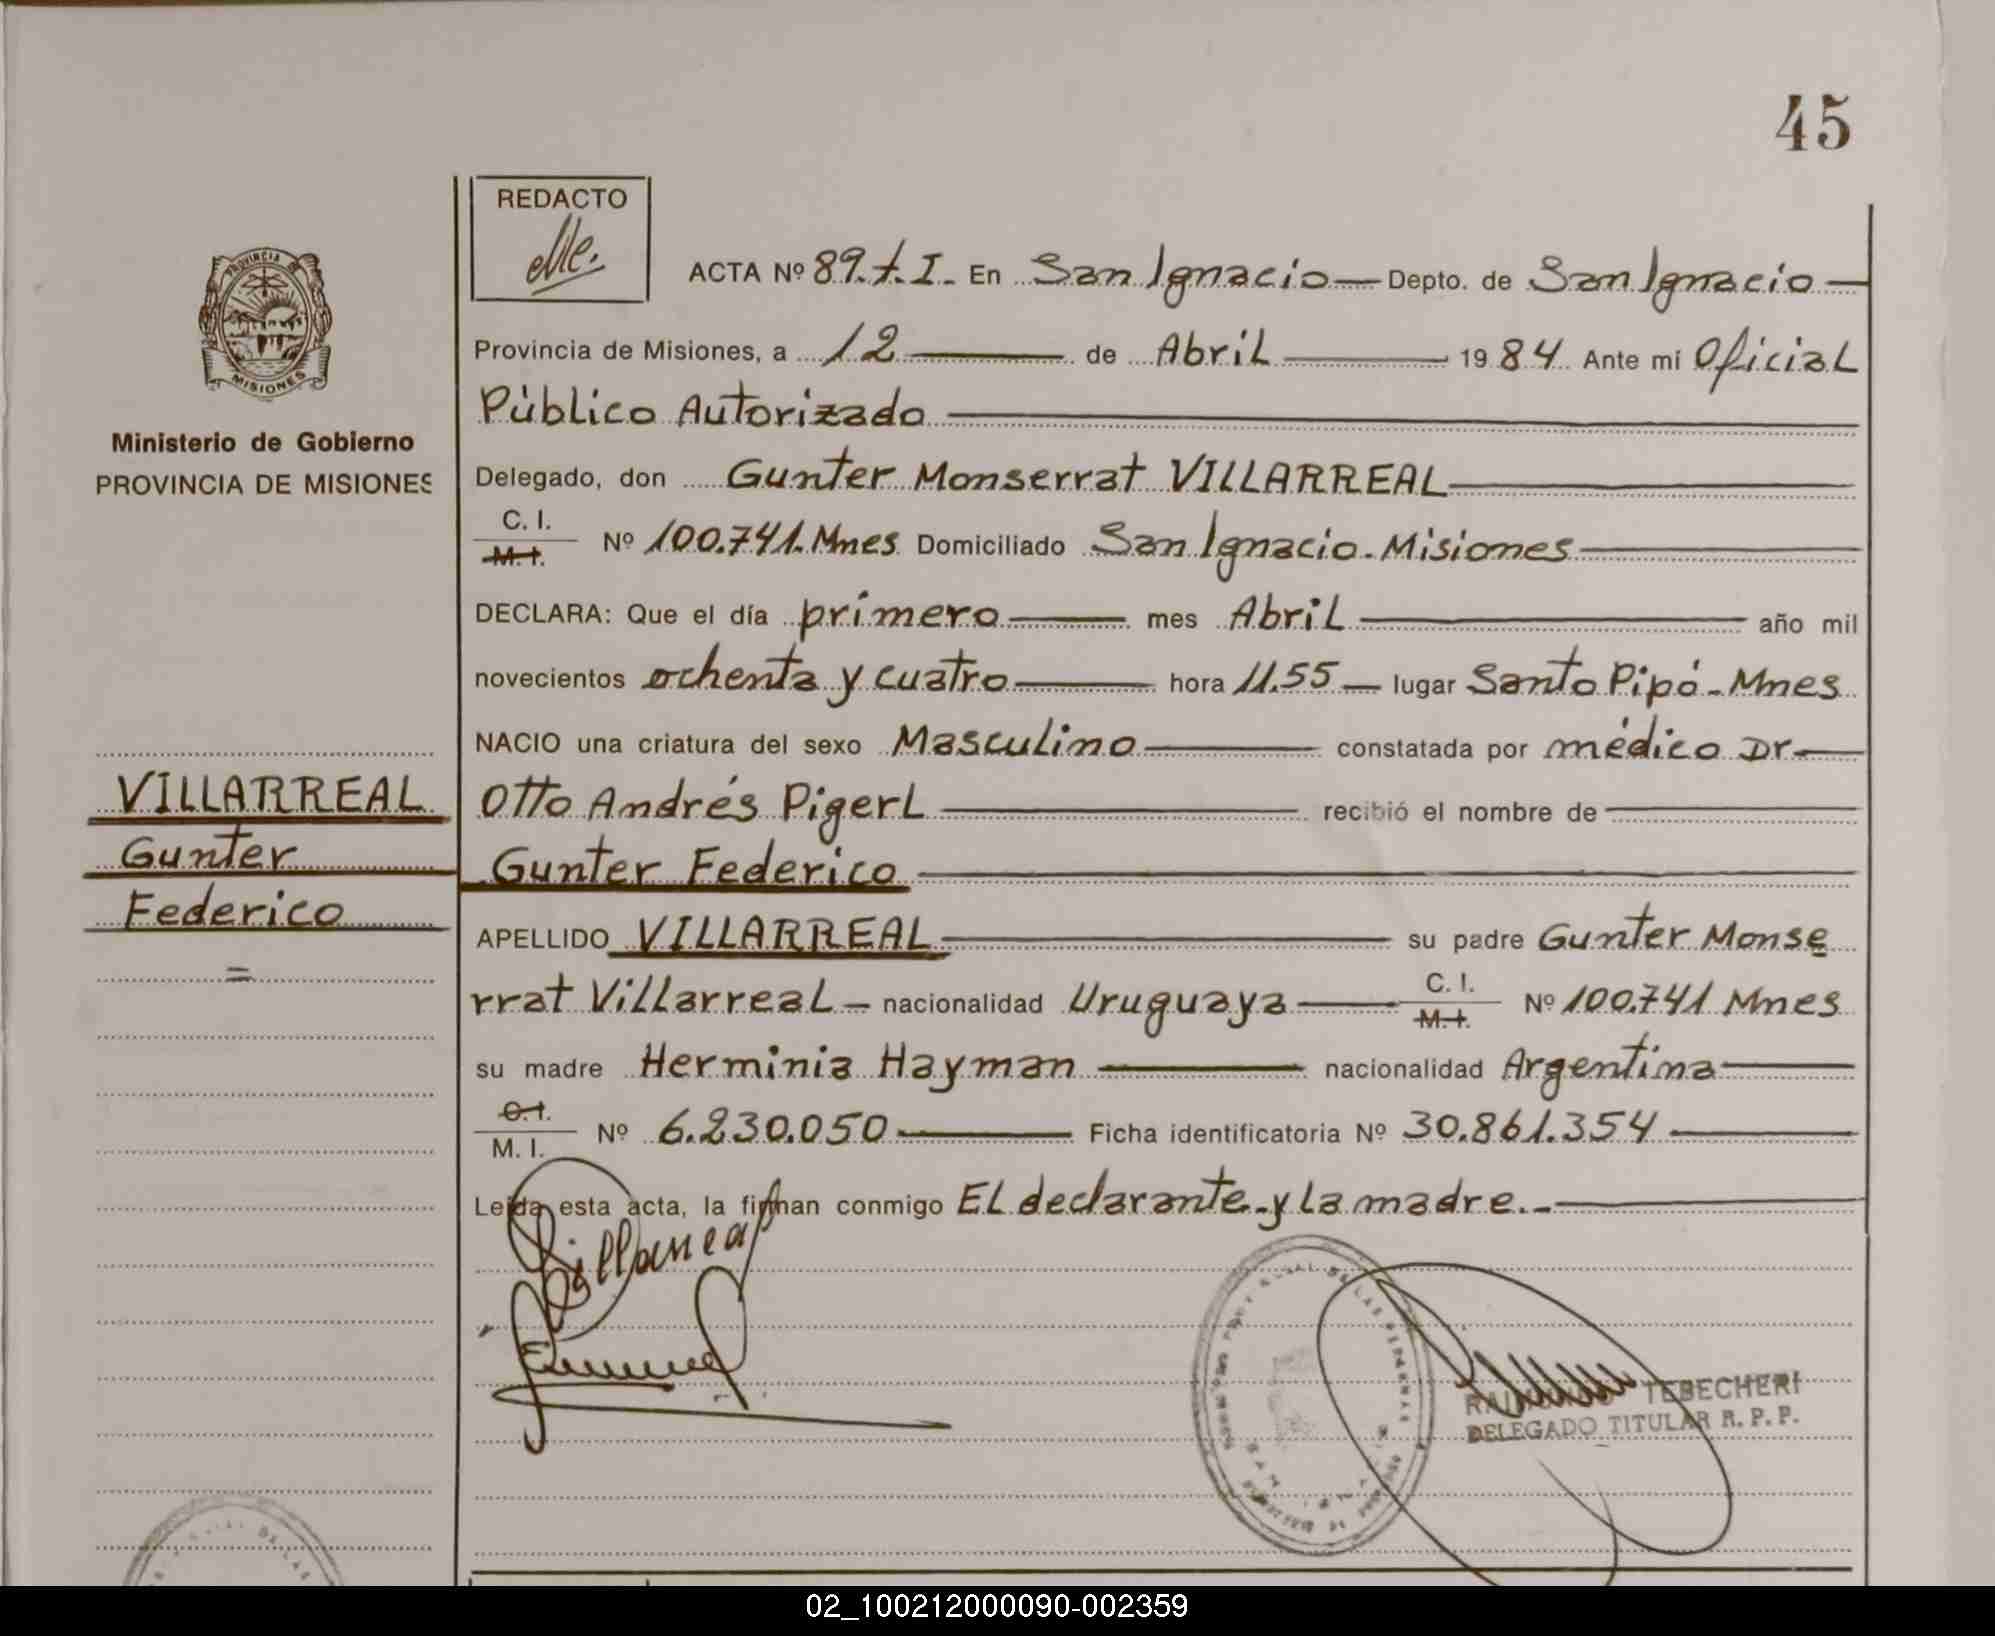 45
REDACTO
PROVINCIA DE
MISIONES
Ministerio de Gobierno
PROVINCIA DE MISIONES
VILLARREAL
Gunter
Federico
=
ACTA Nº 89.t.I. En San Ignacio — Depto. de San Ignacio —
Provincia de Misiones, a 12 — de Abril — 1984 Ante mi Oficial
Público Autorizado —
Delegado, don Gunter Monserrat VILLARREAL —
C. I.
M. I. Nº 100.741. Mnes Domiciliado San Ignacio. Misiones —
DECLARA: Que el día primero — mes Abril — año mil
novecientos ochenta y cuatro — hora 11.55 — lugar Santo Pipó - Mnes
NACIO una criatura del sexo Masculino — constatada por médico Dr. —
Otto Andrés Pigerl — recibió el nombre de —
Gunter Federico —
APELLIDO VILLARREAL — su padre Gunter Monse
rrat Villarreal — nacionalidad Uruguaya — C. I.
M. I. Nº 100.741 Mnes
su madre Herminia Hayman — nacionalidad Argentina —
C. I.
M. I. Nº 6.230.050 — Ficha identificatoria Nº 30.861.354 —
Leída esta acta, la firman conmigo El declarante y la madre. —
Villarreal
TEBECHERI
DELEGADO TITULAR R. P. P.
02_100212000090-002359